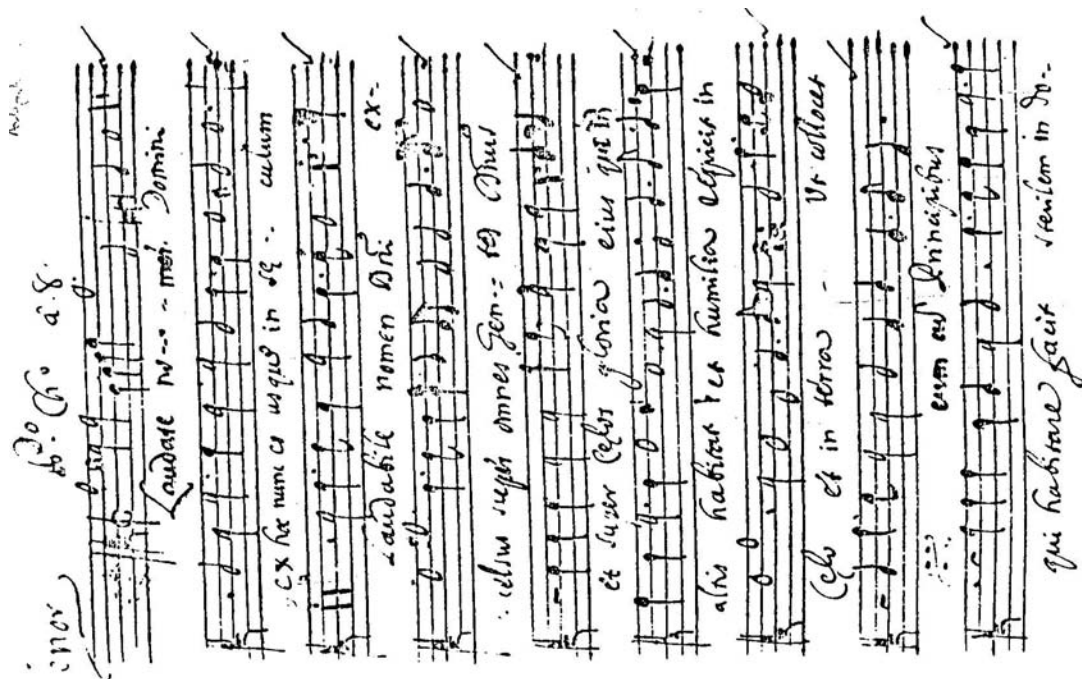 enor 2do Cho a 8.
Laudate no--- men Domini
ex hoc nunc et usque in se - culum
Laudabile nomen Dni ex-
celsus super omnes Gen-- tes Dnus
et super Celos gloria eius qui in
altis habitat et humilia respicit in
Celo et in terra - Vt collocet
eum cum Principibus
qui habitare facit sterilem in do--